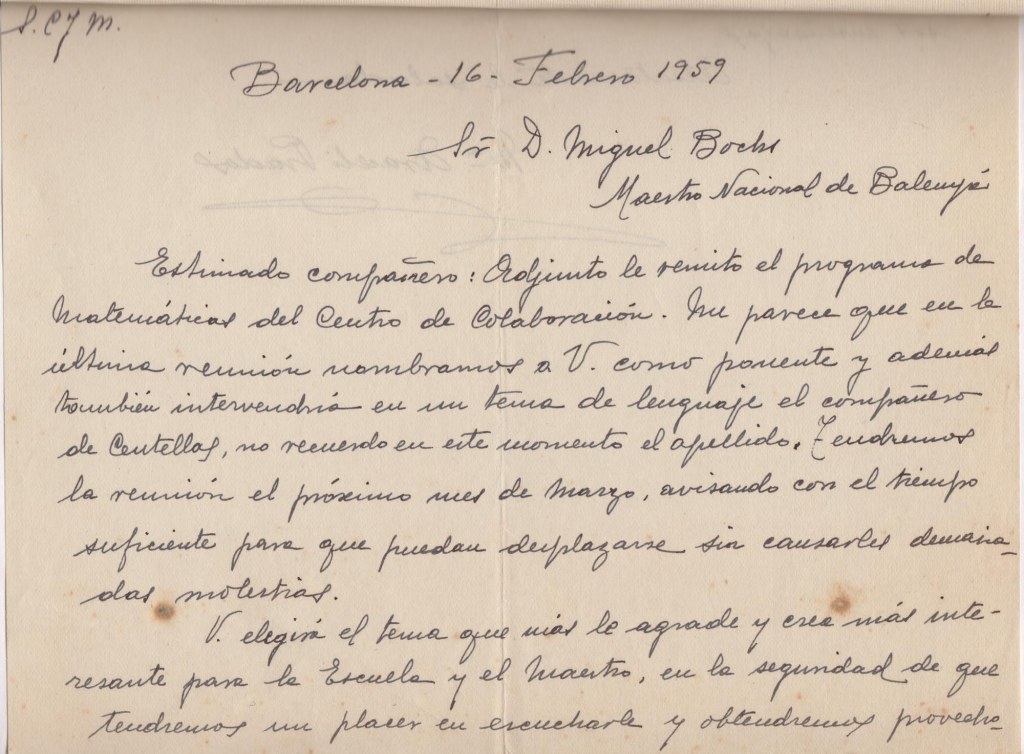 S. C J M.
Barcelona - 16 - Febrero 1959
Sr D. Miguel Bochs
Maestro Nacional de Balenyá
Estimado compañero: Adjunto le remito el programa de
Matemáticas del Centro de Colaboración. Me parece que en la
última reunión nombramos a V. como ponente y además
también intervendría en un tema de lenguaje el compañero
de Centellas, no recuerdo en este momento el apellido. Tendremos
la reunión el próximo mes de Marzo, avisando con el tiempo
suficiente para que puedan desplazarse sin causarles demasia-
das molestias.
V. elegirá el tema que más le agrade y crea más inte-
resante para la Escuela y el Maestro, en la seguridad de que
tendremos un placer en escucharle y obtendremos provecho-